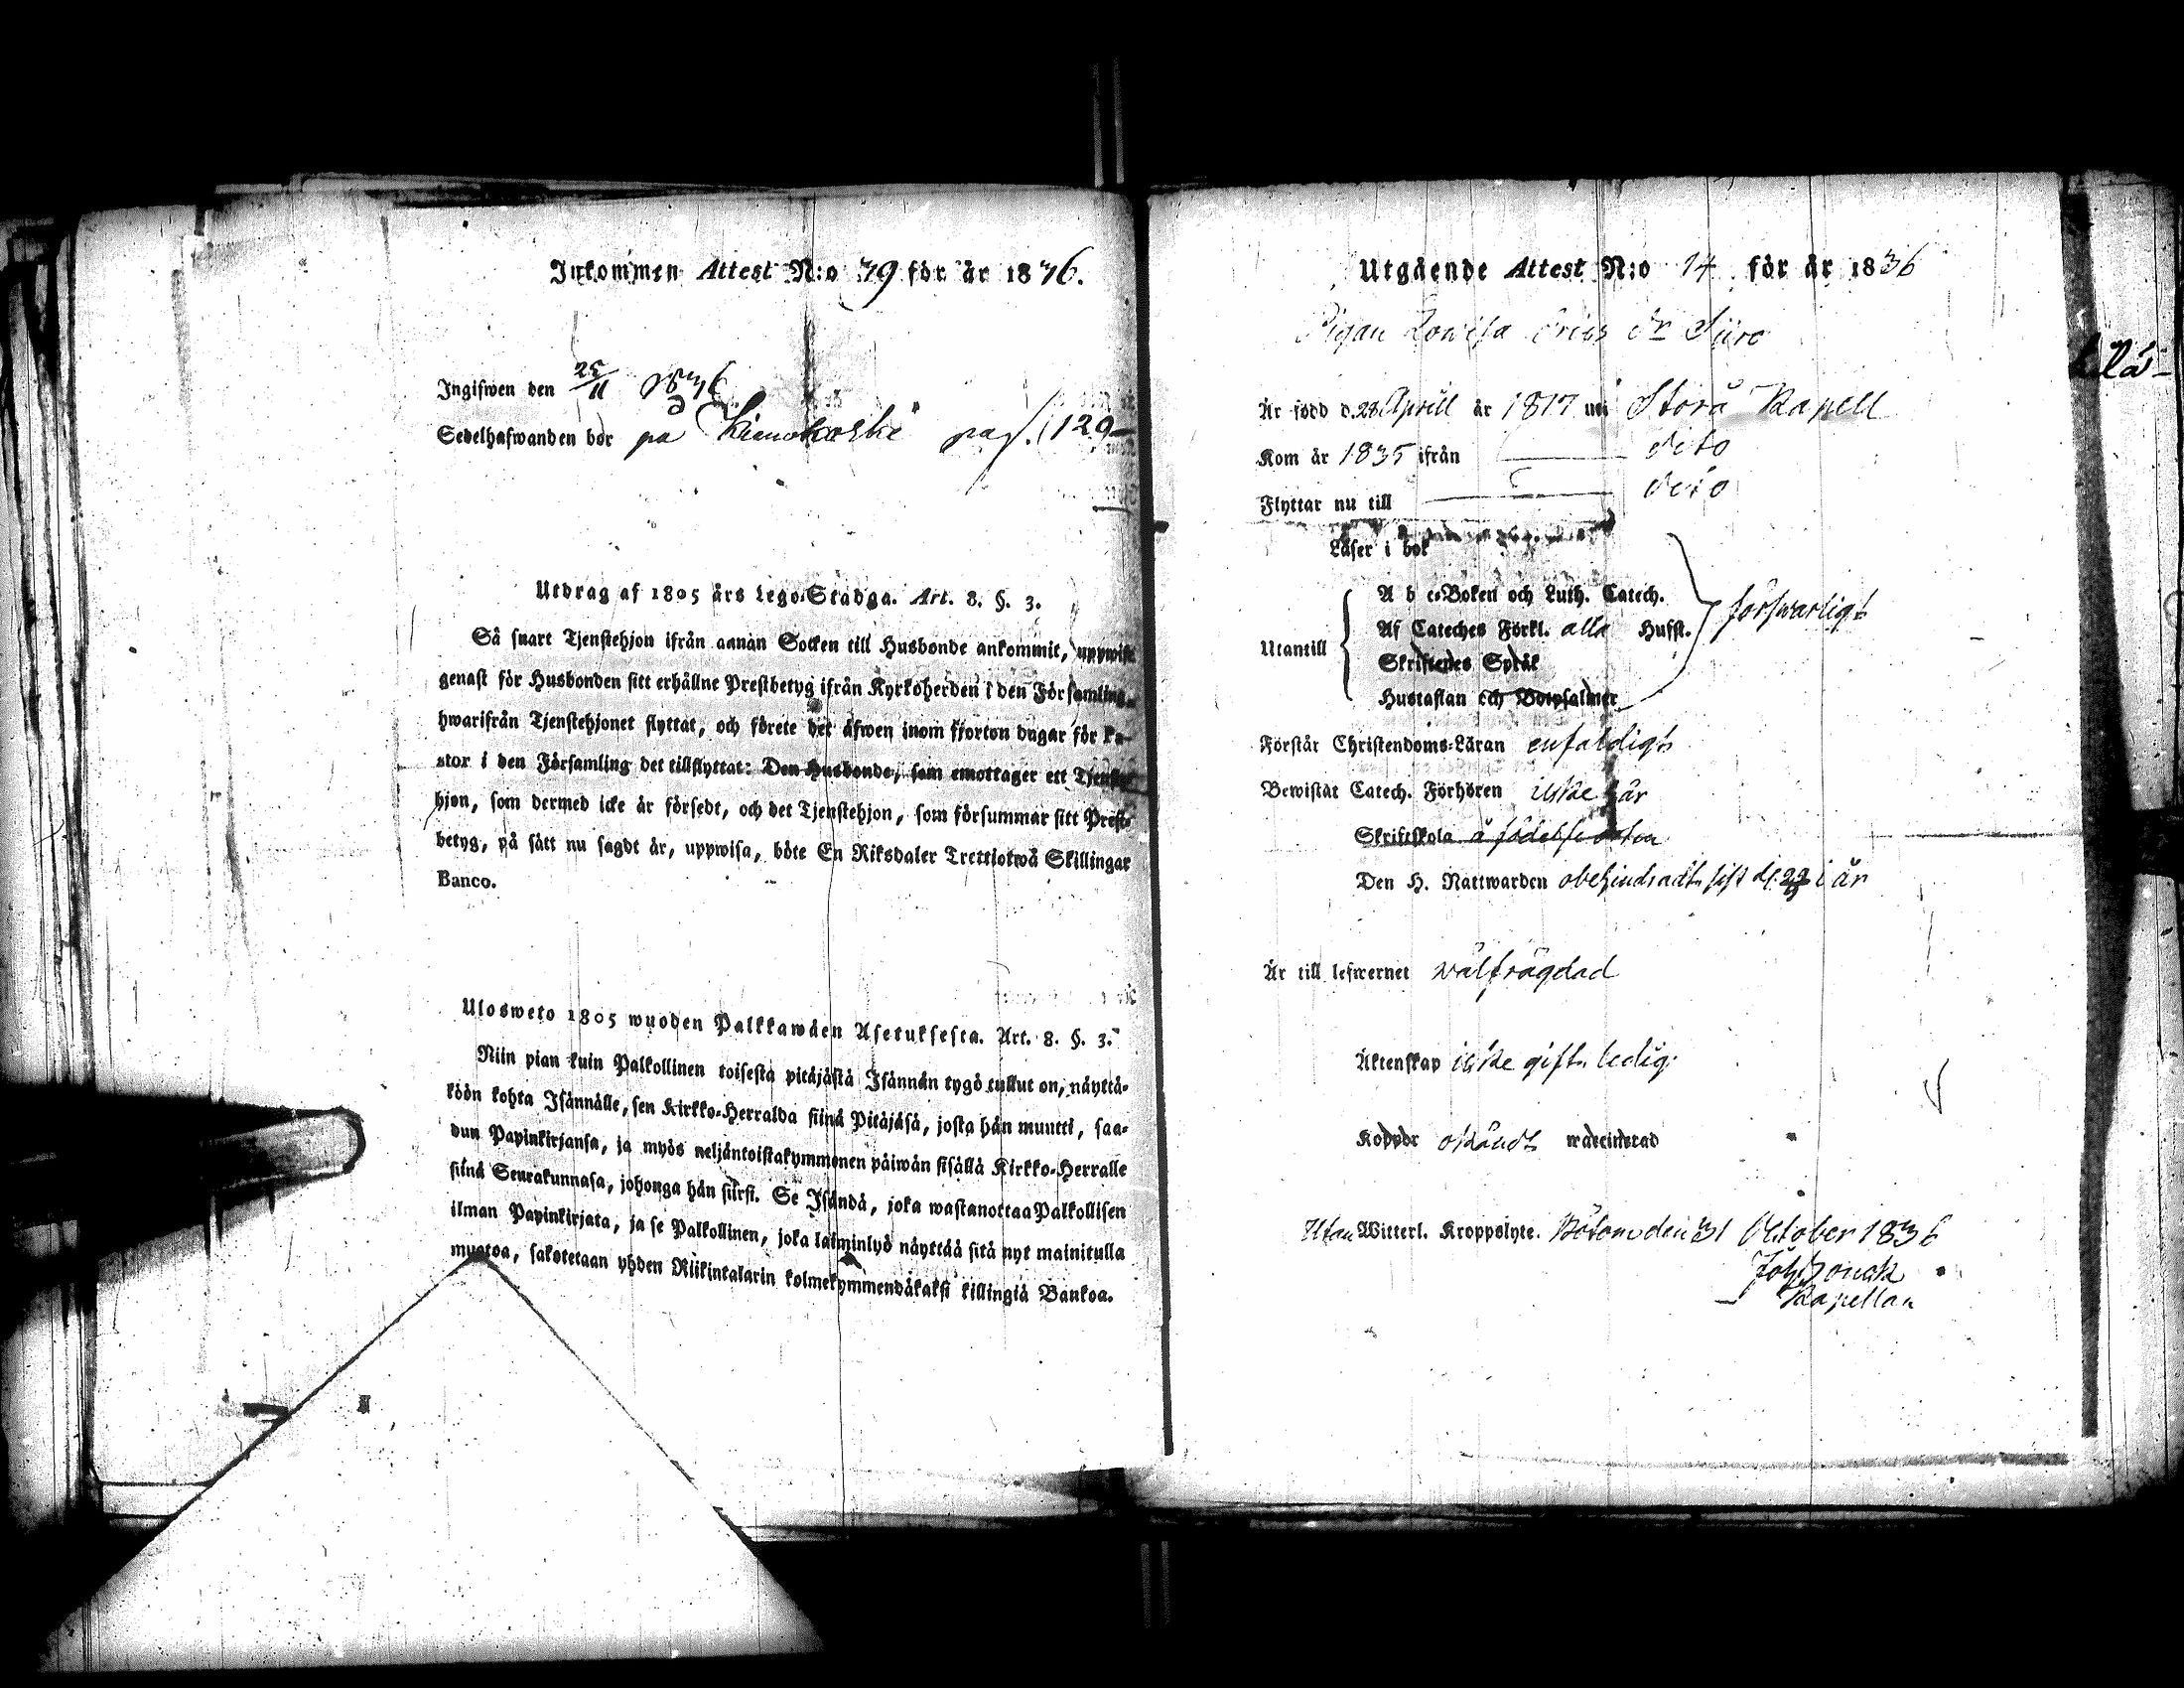 Inkommen Attest N:o 39 för år 1836.
Ingifwen den 25/11 1836
Sedelhafwanden bor på pag. 129
Utdrag af 1805 års Lego-Stadga. Art. 8. §. 3.
Så snart Tjenstehjon ifrån annan Socken till Husbonde ankommit, uppwise
genast för Husbonden sitt erhållne Prestbetyg ifrån Kyrkoherden i den Församling,
hwarifrån Tjenstehjonet flyttat, och förete det äfwen inom fjorton dagar för Pa-
stor i den Församling det tillflyttat: Den Husbonde, som emottager ett Tjenste-
hjon, som dermed icke är försedt, och det Tjenstehjon, som försummar sitt Prest-
betyg, på sätt nu sagdt är, uppwisa, böte En Riksdaler Trettiotwå Skillingar
Banco.
Ulosweto 1805 wuoden Palkkawäen Asetuksesta. Art. 8. §. 3.
Niin pian kuin Palkollinen toisesta pitäjästä Isännän tygö tullut on, näyttä-
köön kohta Isännälle, sen Kirkko-Herralda siinä Pitäjäsä, josta hän muutti, saa-
dun Papinkirjansa, ja myös neljäntoistakymmenen päiwän sisällä Kirkko-Herralle
siinä Seurakunnasa, johonga hän siirsi. Se Isändä, joka wastanottaa Palkollisen
ilman Papinkirjata, ja se Palkollinen, joka laiminlyö näyttää sitä nyt mainitulla
muotoa, sakotetaan yhden Riikintalarin kolmekymmendäkaksi killingiä Bankoa.
Utgående Attest N:o 14 för år 1836
Pigan Lowisa Eriks dr Siiro
Är född d. 28 Aprill år 1817 uti Storå Kapell
Kom år 1835 ifrån dito
Flyttar nu till dito
Läser i bok
A b c-Boken och Luth. Catech.
Utantill Af Cateches Förkl. alla Hufst. förswarligt
Skriftenes Språk
Hustaflan och Botpsalmer
Förstår Christendoms-Läran enfaldigt
Bewistat Catech. Förhören icke i år
Skriftskola å födelseorten
Den H. Nattwarden obehindradt, sist d. i år
Är till lefwernet wälfrägdad
Äktenskap icke gift, ledig.
Koppor okändt waccinerad
Utan Witterl. Kroppslyte. Bötom den 31 October 1836
Kapellan